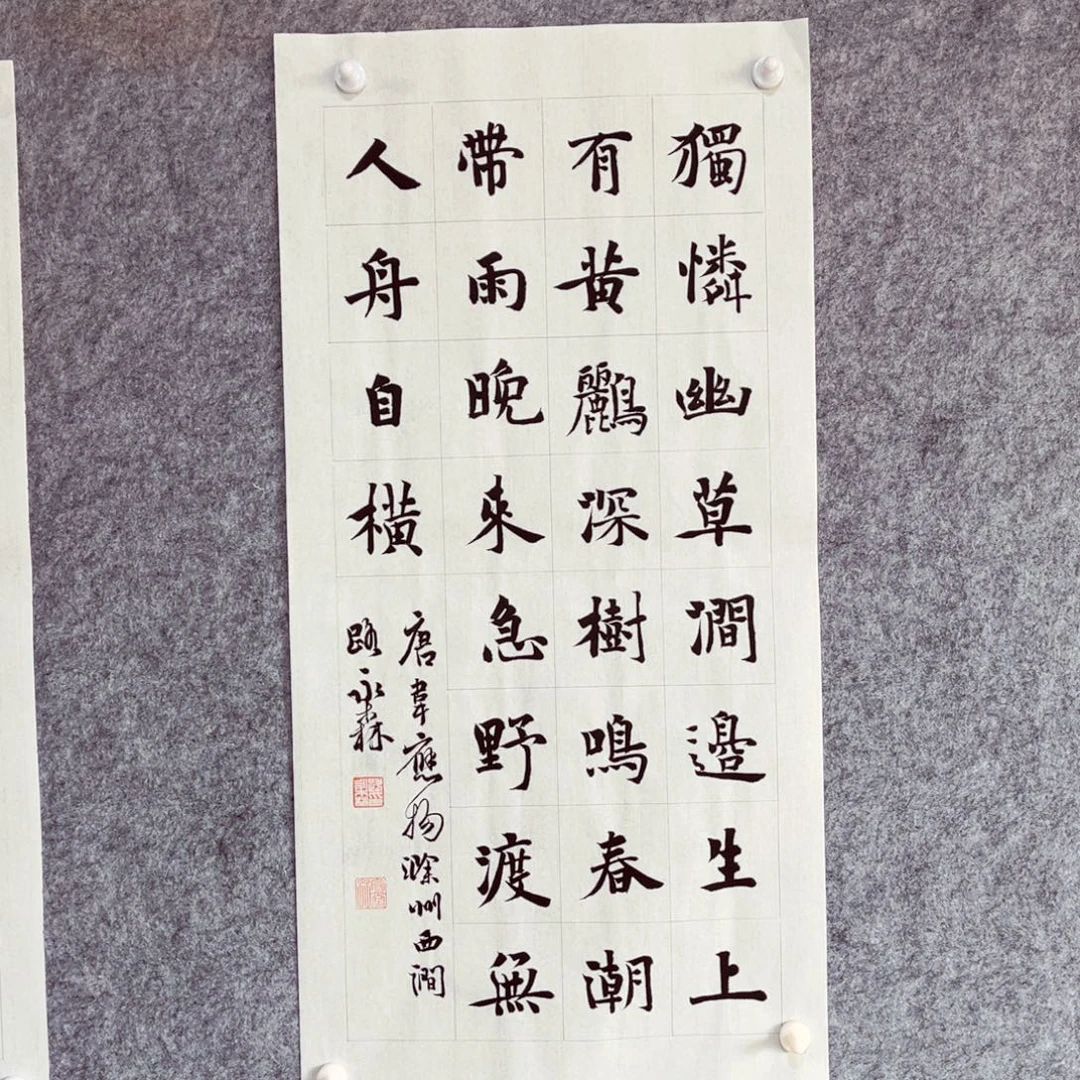 獨憐幽草澗邊生上
有黄鸝深樹鳴春潮
帶雨晚來急野渡無
人舟自橫
唐韋應物滁州西澗
路永森